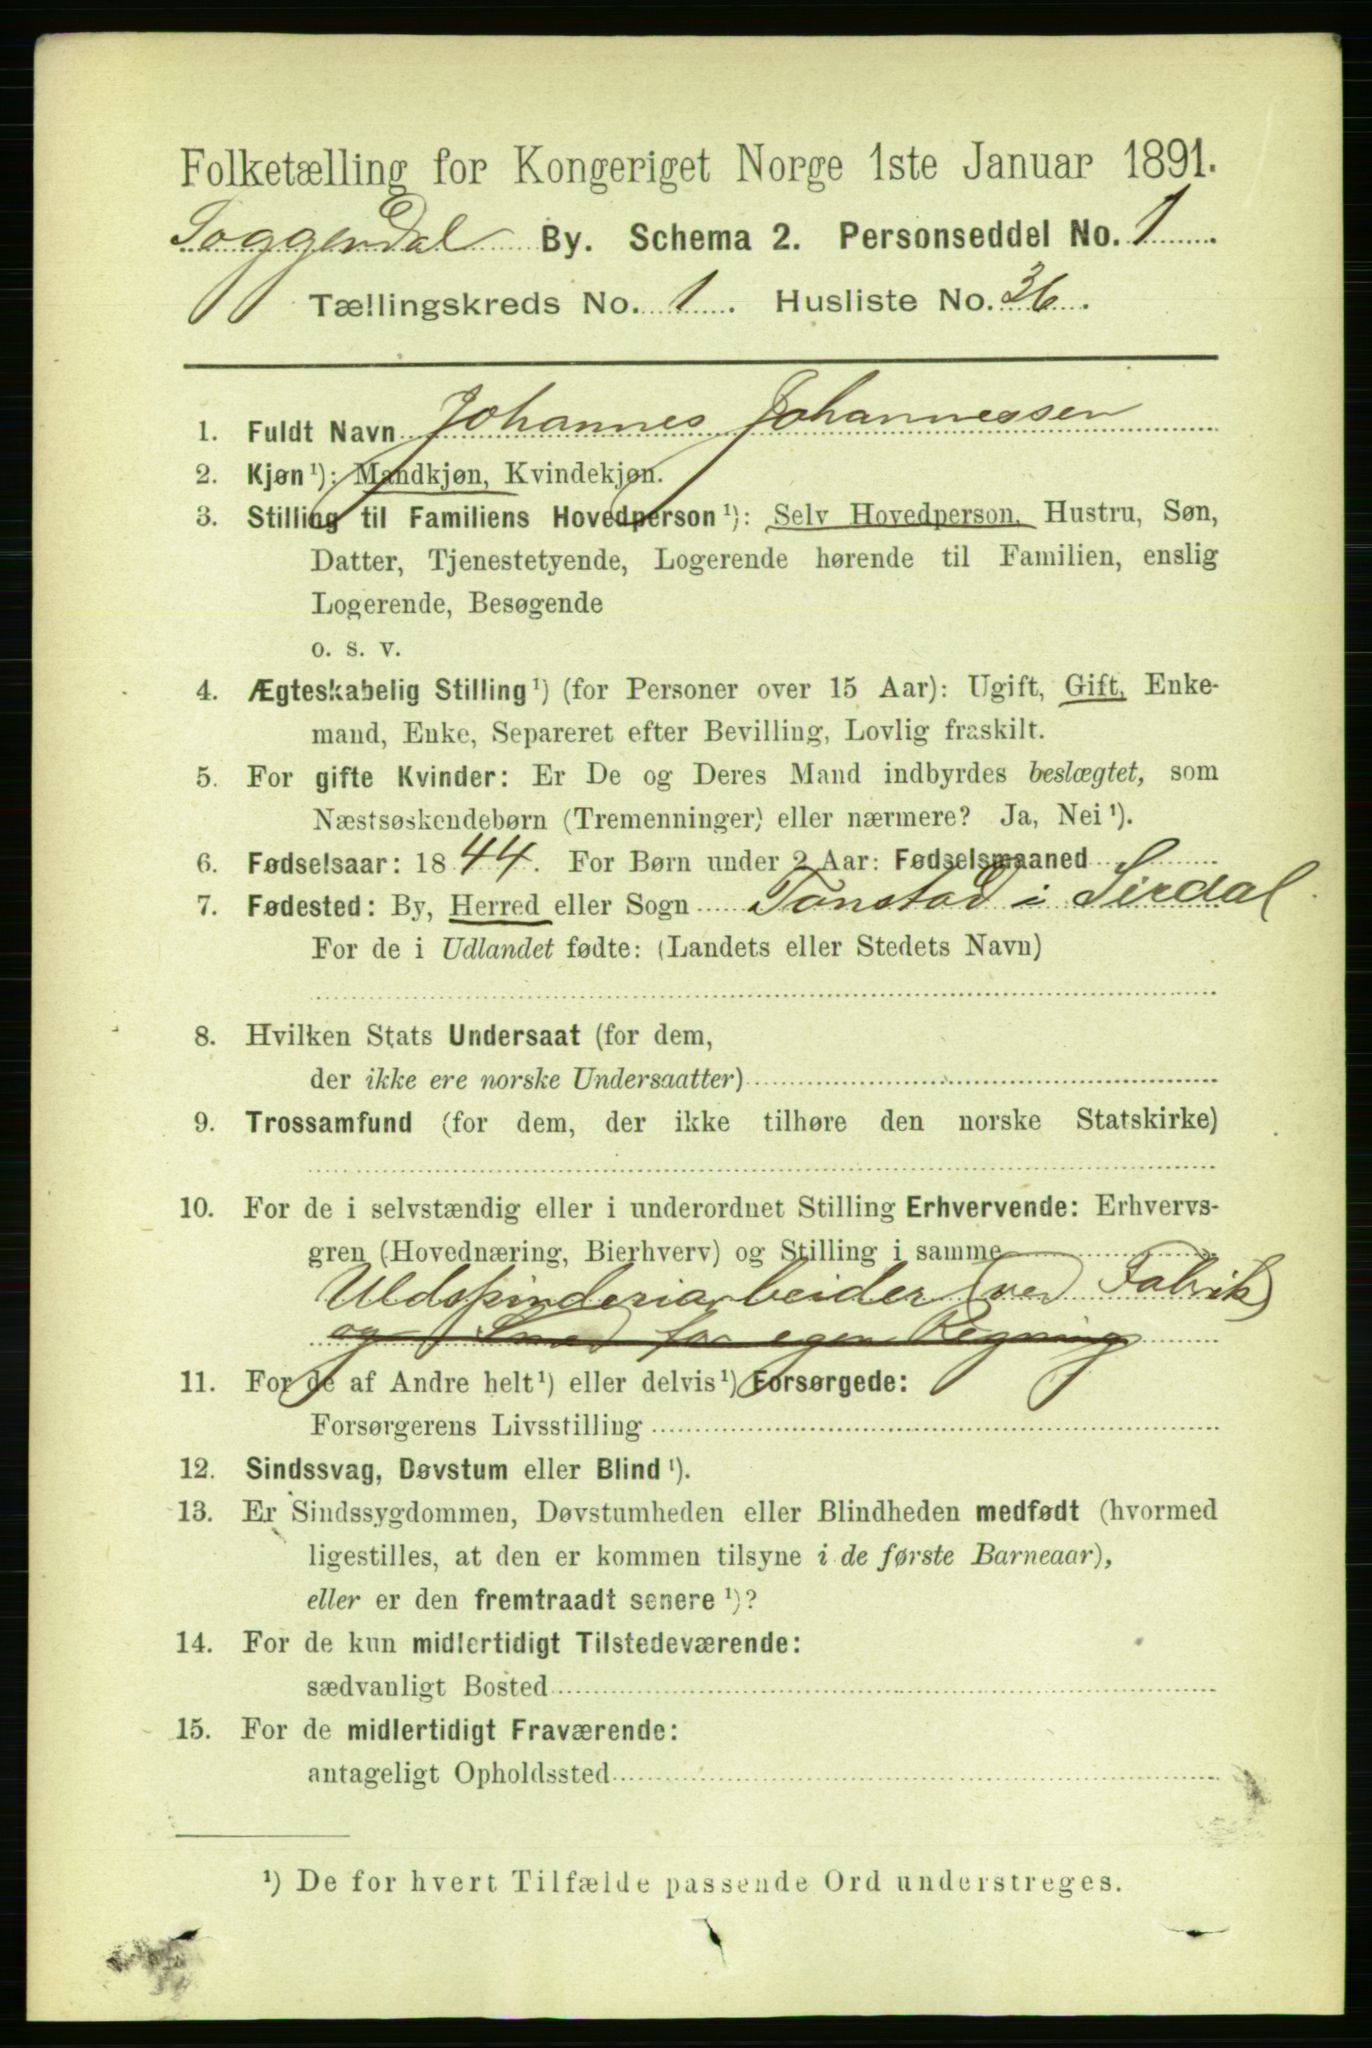 Folketælling for Kongeriget Norge 1ste Januar 1891.
Soggendal By. Schema 2. Personseddel No. 1
Tællingskreds No. 1. Husliste No. 36.
1. Fuldt Navn Johannes Johannessen
2. Kjøn¹): Mandkjøn, Kvindekjøn.
3. Stilling til Familiens Hovedperson¹): Selv Hovedperson, Hustru, Søn,
Datter, Tjenestetyende, Logerende hørende til Familien, enslig
Logerende, Besøgende
o. s. v.
4. Ægteskabelig Stilling¹) (for Personer over 15 Aar): Ugift, Gift, Enke-
mand, Enke, Separeret efter Bevilling, Lovlig fraskilt.
5. For gifte Kvinder: Er De og Deres Mand indbyrdes beslægtet, som
Næstsøskendebørn (Tremenninger) eller nærmere? Ja, Nei¹).
6. Fødselsaar: 1844. For Børn under 2 Aar: Fødselsmaaned
7. Fødested: By, Herred eller Sogn Tonstad i Sirdal
For de i Udlandet fødte: (Landets eller Stedets Navn)
8. Hvilken Stats Undersaat (for dem,
der ikke ere norske Undersaatter)
9. Trossamfund (for dem, der ikke tilhøre den norske Statskirke)
10. For de i selvstændig eller i underordnet Stilling Erhvervende: Erhvervs-
gren (Hovednæring, Bierhverv) og Stilling i samme
Uldspinderiarbeider (ved Fabrik)
og Smed for egen Regning
11. For de af Andre helt¹) eller delvis¹) Forsørgede:
Forsørgerens Livsstilling
12. Sindssvag, Døvstum eller Blind¹).
13. Er Sindssygdommen, Døvstumheden eller Blindheden medfødt (hvormed
ligestilles, at den er kommen tilsyne i de første Barneaar),
eller er den fremtraadt senere¹)?
14. For de kun midlertidigt Tilstedeværende:
sædvanligt Bosted
15. For de midlertidigt Fraværende:
antageligt Opholdssted
¹) De for hvert Tilfælde passende Ord understreges.